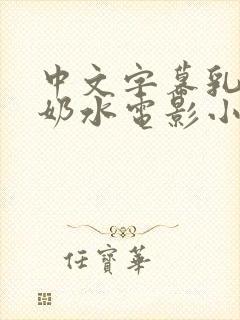 中文字幕乳
奶水电影小
任寶華